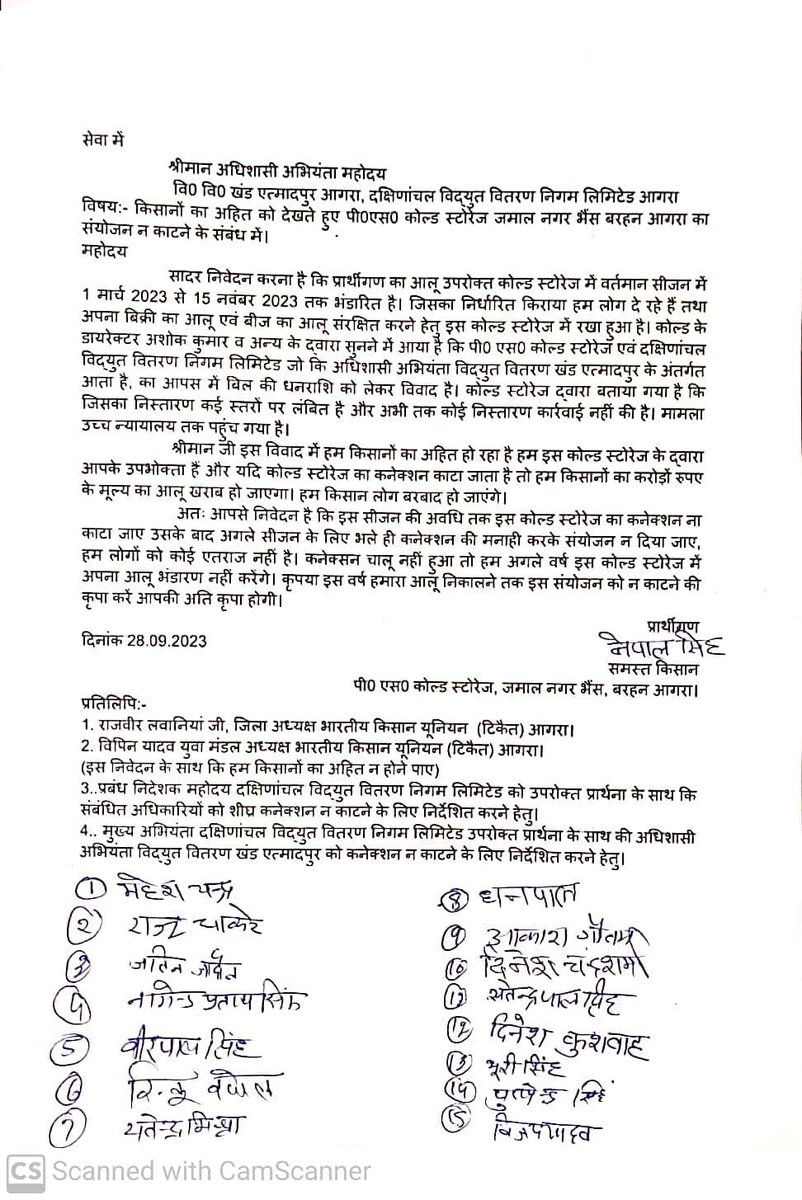 सेवा में
श्रीमान अधिशासी अभियंता महोदय
वि0 वि0 खंड एत्मादपुर आगरा, दक्षिणांचल विद्युत वितरण निगम लिमिटेड आगरा
विषय:- किसानों का अहित को देखते हुए पी0एस0 कोल्ड स्टोरेज जमाल नगर भैंस बरहन आगरा का
संयोजन न काटने के संबंध में।
महोदय
सादर निवेदन करना है कि प्रार्थीगण का आलू उपरोक्त कोल्ड स्टोरेज में वर्तमान सीजन में
1 मार्च 2023 से 15 नवंबर 2023 तक भंडारित है। जिसका निर्धारित किराया हम लोग दे रहे हैं तथा
अपना बिक्री का आलू एवं बीज का आलू संरक्षित करने हेतु इस कोल्ड स्टोरेज में रखा हुआ है। कोल्ड के
डायरेक्टर अशोक कुमार व अन्य के द्वारा सुनने में आया है कि पी0 एस0 कोल्ड स्टोरेज एवं दक्षिणांचल
विद्युत वितरण निगम लिमिटेड जो कि अधिशासी अभियंता विद्युत वितरण खंड एत्मादपुर के अंतर्गत
आता है, का आपस में बिल की धनराशि को लेकर विवाद है। कोल्ड स्टोरेज द्वारा बताया गया है कि
जिसका निस्तारण कई स्तरों पर लंबित है और अभी तक कोई निस्तारण कार्रवाई नहीं की है। मामला
उच्च न्यायालय तक पहुंच गया है।
श्रीमान जी इस विवाद में हम किसानों का अहित हो रहा है हम इस कोल्ड स्टोरेज के द्वारा
आपके उपभोक्ता हैं और यदि कोल्ड स्टोरेज का कनेक्शन काटा जाता है तो हम किसानों का करोड़ों रुपए
के मूल्य का आलू खराब हो जाएगा। हम किसान लोग बरबाद हो जाएंगे।
अतः आपसे निवेदन है कि इस सीजन की अवधि तक इस कोल्ड स्टोरेज का कनेक्शन ना
काटा जाए उसके बाद अगले सीजन के लिए भले ही कनेक्शन की मनाही करके संयोजन न दिया जाए,
हम लोगों को कोई एतराज नहीं है। कनेक्सन चालू नहीं हुआ तो हम अगले वर्ष इस कोल्ड स्टोरेज में
अपना आलू भंडारण नहीं करेंगे। कृपया इस वर्ष हमारा आलू निकालने तक इस संयोजन को न काटने की
कृपा करें आपकी अति कृपा होगी।
प्रार्थीगण
दिनांक 28.09.2023
नेपाल सिंह
समस्त किसान
पी0 एस0 कोल्ड स्टोरेज, जमाल नगर भैंस, बरहन आगरा।
प्रतिलिपि:-
1. राजवीर लवानियां जी, जिला अध्यक्ष भारतीय किसान यूनियन (टिकैत) आगरा।
2. विपिन यादव युवा मंडल अध्यक्ष भारतीय किसान यूनियन (टिकैत) आगरा।
(इस निवेदन के साथ कि हम किसानों का अहित न होने पाए)
3..प्रबंध निदेशक महोदय दक्षिणांचल विद्युत वितरण निगम लिमिटेड को उपरोक्त प्रार्थना के साथ कि
संबंधित अधिकारियों को शीघ्र कनेक्शन न काटने के लिए निर्देशित करने हेतु।
4.. मुख्य अभियंता दक्षिणांचल विद्युत वितरण निगम लिमिटेड उपरोक्त प्रार्थना के साथ की अधिशासी
अभियंता विद्युत वितरण खंड एत्मादपुर को कनेक्शन न काटने के लिए निर्देशित करने हेतु।
1 महेश चन्द्र
2 राजू
3 जतिन
4 नागेन्द्र प्रताप सिंह
5 वीरपाल सिंह
6 रिन्कू बघेल
7 यतेन्द्र
8 धनपाल
9 आकाश गौतम
10 दिनेश चंद शर्मा
11 सतेन्द्रपाल सिंह
12 दिनेश कुशवाह
13 भूरी सिंह
14 सिंह
15
CS Scanned with CamScanner